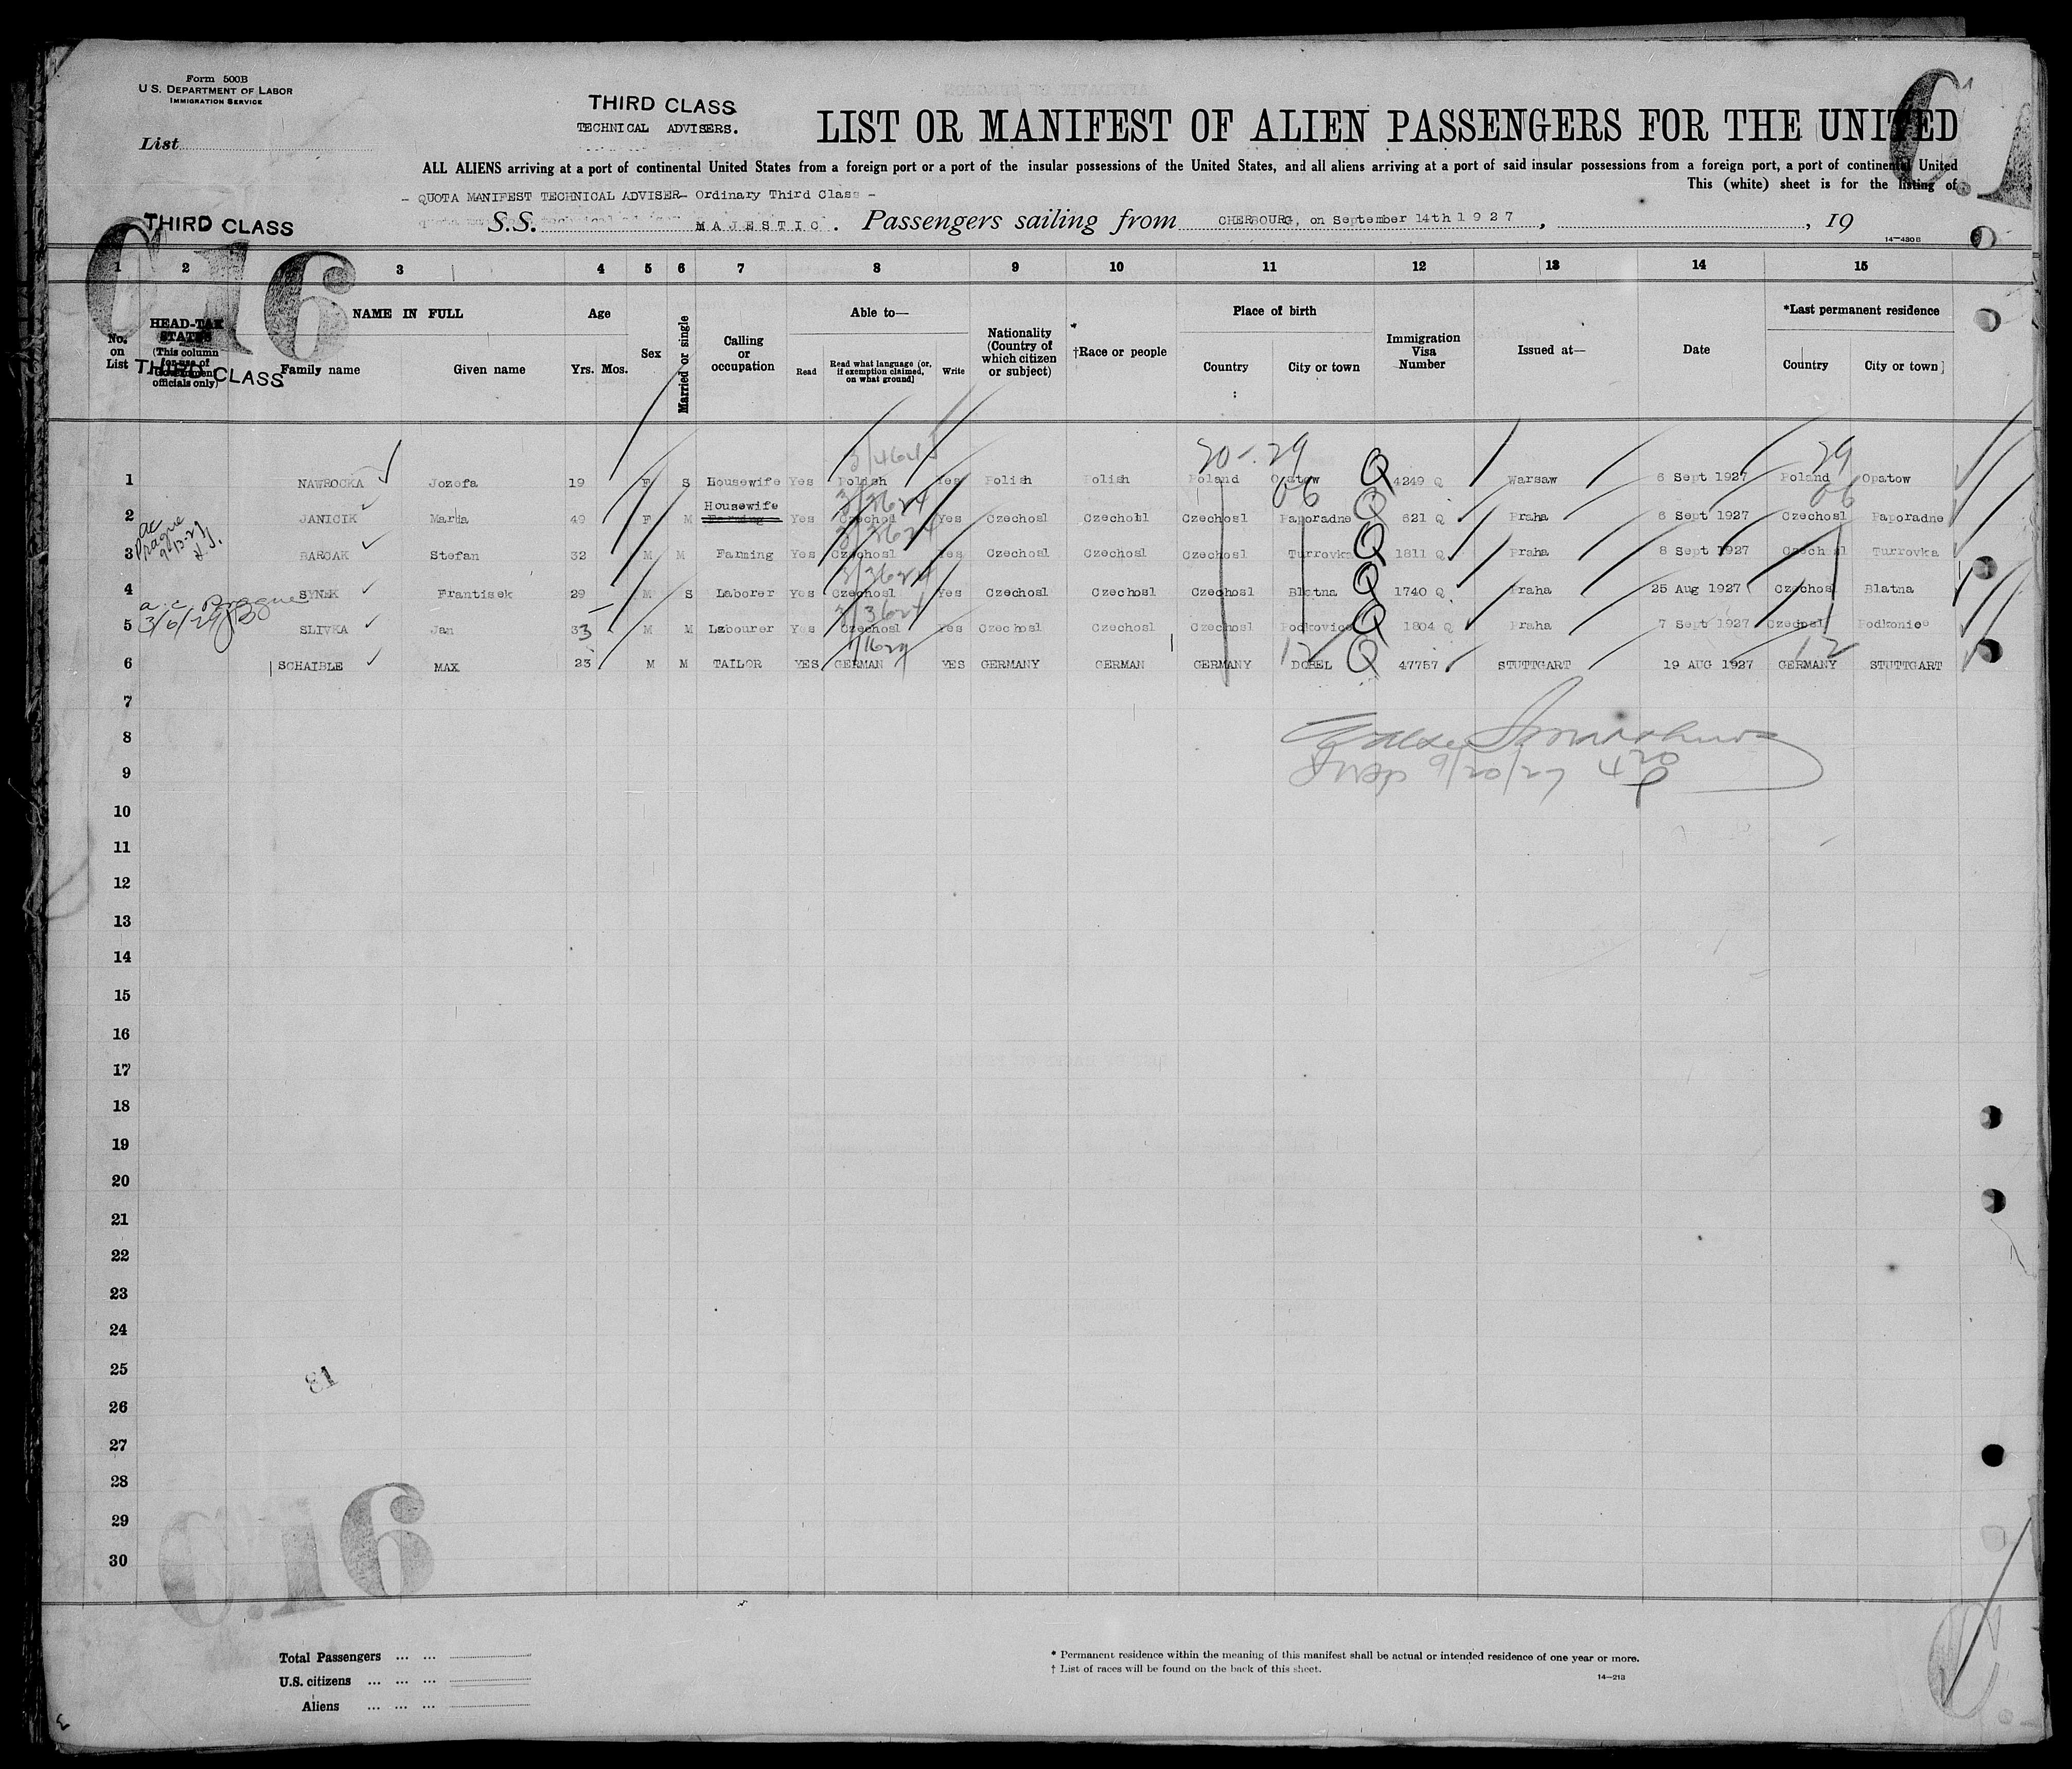 Form 500B
U.S. DEPARTMENT OF LABOR
IMMIGRATION SERVICE
List
THIRD CLASS
TECHNICAL ADVISERS.
LIST OR MANIFEST OF ALIEN PASSENGERS FOR THE UNITED
ALL ALIENS arriving at a port of continental United States from a foreign port or a port of the insular possessions of the United States, and all aliens arriving at a port of said insular possessions from a foreign port, a port of continental United
This (white) sheet is for the listing of
- QUOTA MANIFEST TECHNICAL ADVISER- Ordinary Third Class -
THIRD CLASS
S.S. MAJESTIC. Passengers sailing from CHERBOURG, on September 14th 1927, , 19
14-430B
C16
1 2 3 4 5 6 7 8 9 10 11 12 13 14 15
No. on List
HEAD-TAX STATUS (This column for use of Government officials only)
THIRD CLASS
NAME IN FULL
Family name Given name
Age
Yrs. Mos.
Sex
Married or single
Calling or occupation
Able to—
Read
Read what language (or, if exemption claimed, on what ground)
Write
Nationality (Country of which citizen or subject)
†Race or people
Place of birth
Country City or town
Immigration Visa Number
Issued at—
Date
*Last permanent residence
Country City or town
3/4645 50-.29 29
1 NAWROCKA Jozefa 19 F S Housewife Yes Polish Yes Polish Polish Poland Opatow Q 4249 Q Warsaw 6 Sept 1927 Poland Opatow
Housewife 3/3624 06 06
2 JANICIK Maria 49 F M Farming Yes Czechosl Yes Czechosl Czechosl Czechosl Paporadne Q 621 Q Praha 6 Sept 1927 Czechosl Paporadne
ac Prague 9-13-29
3/3624
3 BARCAK Stefan 32 M M Farming Yes Czechosl Yes Czechosl Czechosl Czechosl Turrovka Q 1811 Q Praha 8 Sept 1927 Czechosl Turrovka
3/3624
4 SYNEK Frantisek 29 M S Laborer Yes Czechosl Yes Czechosl Czechosl Czechosl Blatna Q 1740 Q Praha 25 Aug 1927 Czechosl Blatna
a.c. Prague
3/6/29
3/3624
5 SLIVKA Jan 33 M M Labourer Yes Czechosl Yes Czechosl Czechosl Czechosl Podkovice Q 1804 Q Praha 7 Sept 1927 Czechosl Podkonice
1/1624 12 12
6 SCHAIBLE MAX 23 M M TAILOR YES GERMAN YES GERMANY GERMAN GERMANY DOBEL Q 47757 STUTTGART 19 AUG 1927 GERMANY STUTTGART
7
8
9
Insp 9/20/27 420
10
11
12
13
14
15
16
17
18
19
20
21
22
23
24
25
81
26
27
28
29
30
C.16
Total Passengers
U.S. citizens
Aliens
* Permanent residence within the meaning of this manifest shall be actual or intended residence of one year or more.
† List of races will be found on the back of this sheet.
14-213